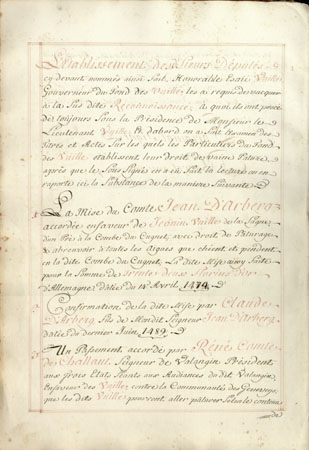 L'Etablissement Des Sieurs Députés
cy devant nommés ainsi fait, Honorable Esaïe Vuille
Gouverneur du Fond des Vuille, les a requis de vacquer
à la sus dite Reconnoissance, à quoi, ils ont procé
dés toujours sous la Présidence de Monsieur le
Lieutenant Vuille, & d'abord on a fait
titres et Actes sur les quels les Particuliers du Fond
des Vuille établissent leur droit de vaine Pâture,
après que le sous signés en a eû fait la lecture on en
raportés ici la Substance de la maniere suivante
La Mise du Comte Jean D'Arberg
accordée en faveur de Vuille de la
à la Combe du Cugnet, avec droit de Pâturage
& abreuvoir d'toutes les Aigues que chient et pendent
en la dite Combe du Cugnet, La dite Mise ainsy faite
pour la Somme de trente deux florins d'or
d'Allemagne, datée du 14e Avril 1479.
Confirmation de la dite Mise par Claude
D'Arberg fils de Mondit Seigneur Jean D'Arberg
datée du dernier Juin 1489.
Un Passement accordé par René Comte
de Challant, Seigneur de Valangin Président
aux trois Etats Tenants aux Audiances du dit Valangin
en faveur des Vuille contre la Communauté des
que les dits Vuille pourront aller pâturer